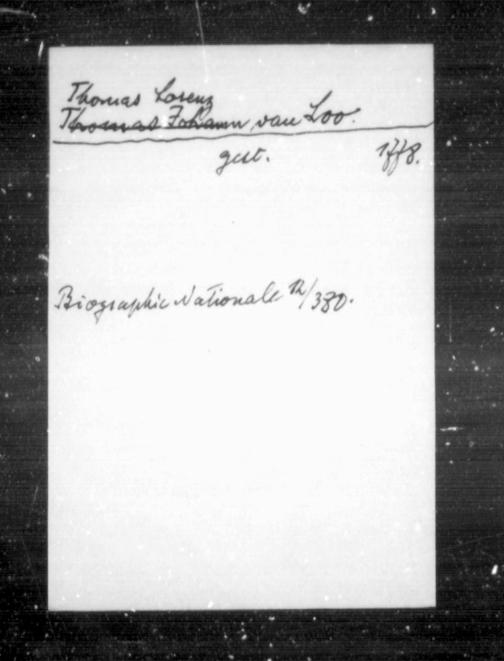 Thomas Lorenz
Thomas Johann van Loo.
gest. 1778.
Biographie Nationale /380.